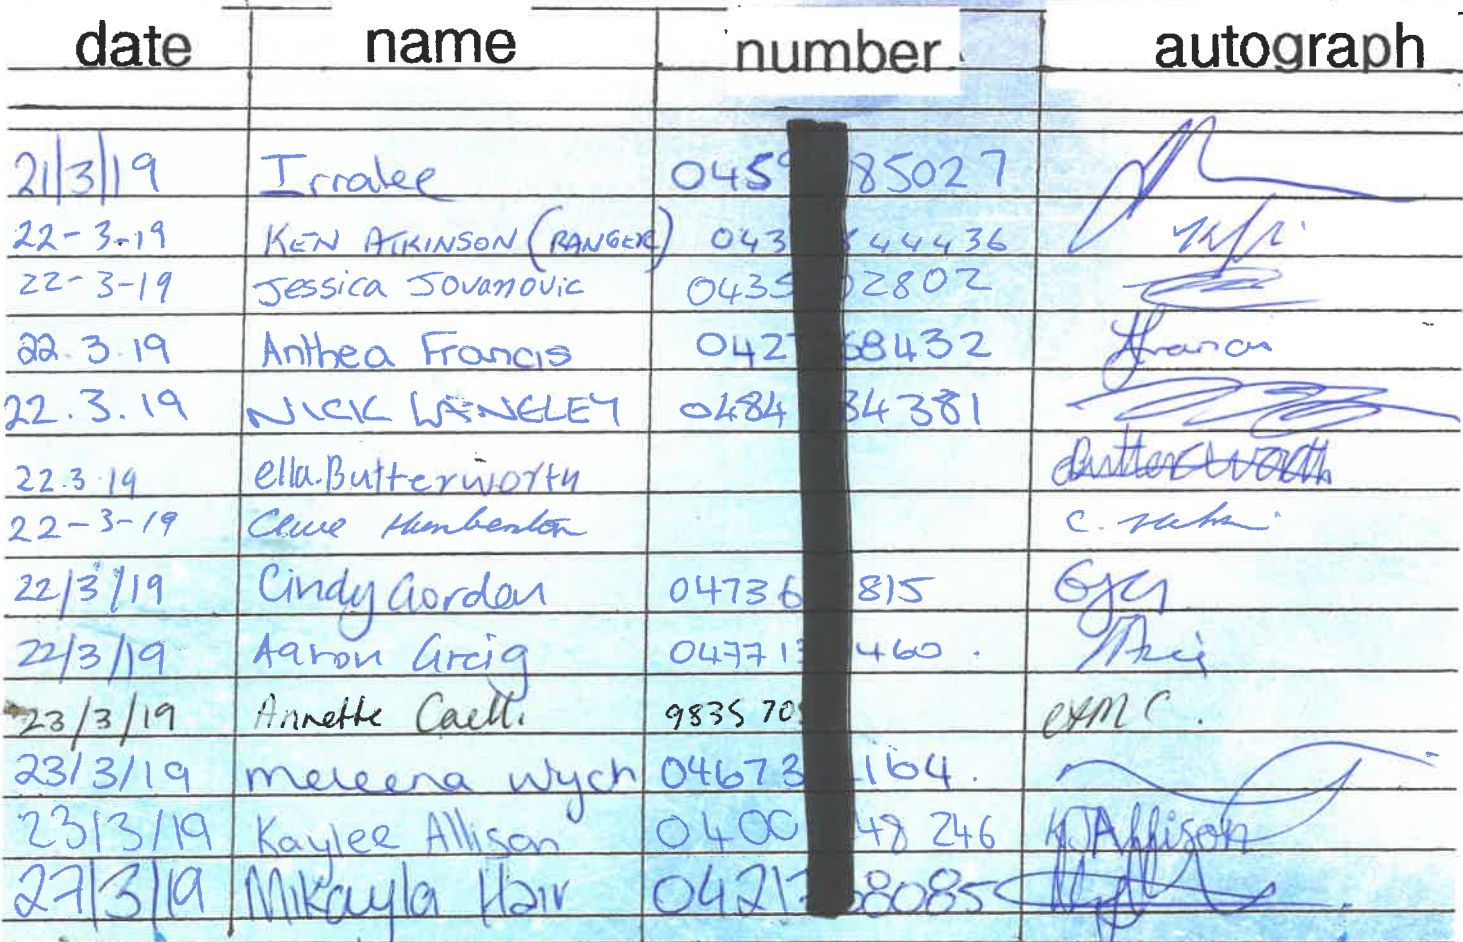 date name number autograph
21/3/19 Irralee 045 85027
22-3-19 KEN ATKINSON (RANGER) 043 44436
22-3-19 Jessica Jovanovic 0435 2802
22.3.19 Anthea Francis 042 68432 Francis
22.3.19 NICK LANGLEY 0484 34381
22.3.19 ella.Butterworth Butterworth
22-3-19 C.
22/3/19 Cindy Gordon 04736 815
22/3/19 Aaron Greig 047713 460.
23/3/19 Annette Caelli 9835 70
23/3/19 meleena wych 04673 164.
23/3/19 Kaylee Allison 0400 48 246 KJAllison
27/3/19 Mikayla Hair 0421 68085